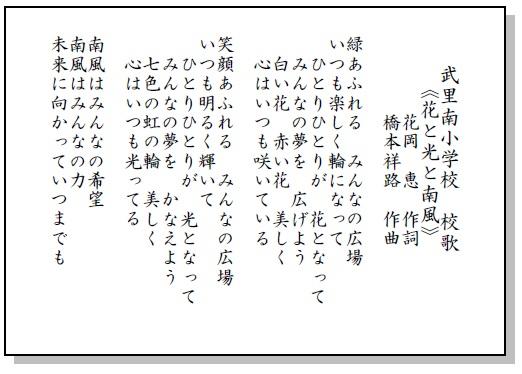 武里南小学校　校歌
《花と光と南風》
花岡　恵　作詞
橋本祥路　作曲
緑あふれる　みんなの広場
いつも楽しく輪になって
ひとりひとりが　花となって
みんなの夢を　広げよう
白い花　赤い花　美しく
心はいつも咲いている
笑顔あふれる　みんなの広場
いつも明るく輝いて
ひとりひとりが　光となって
みんなの夢を　かなえよう
七色の虹の輪　美しく
心はいつも光ってる
南風はみんなの希望
南風はみんなの力
未来に向かっていつまでも